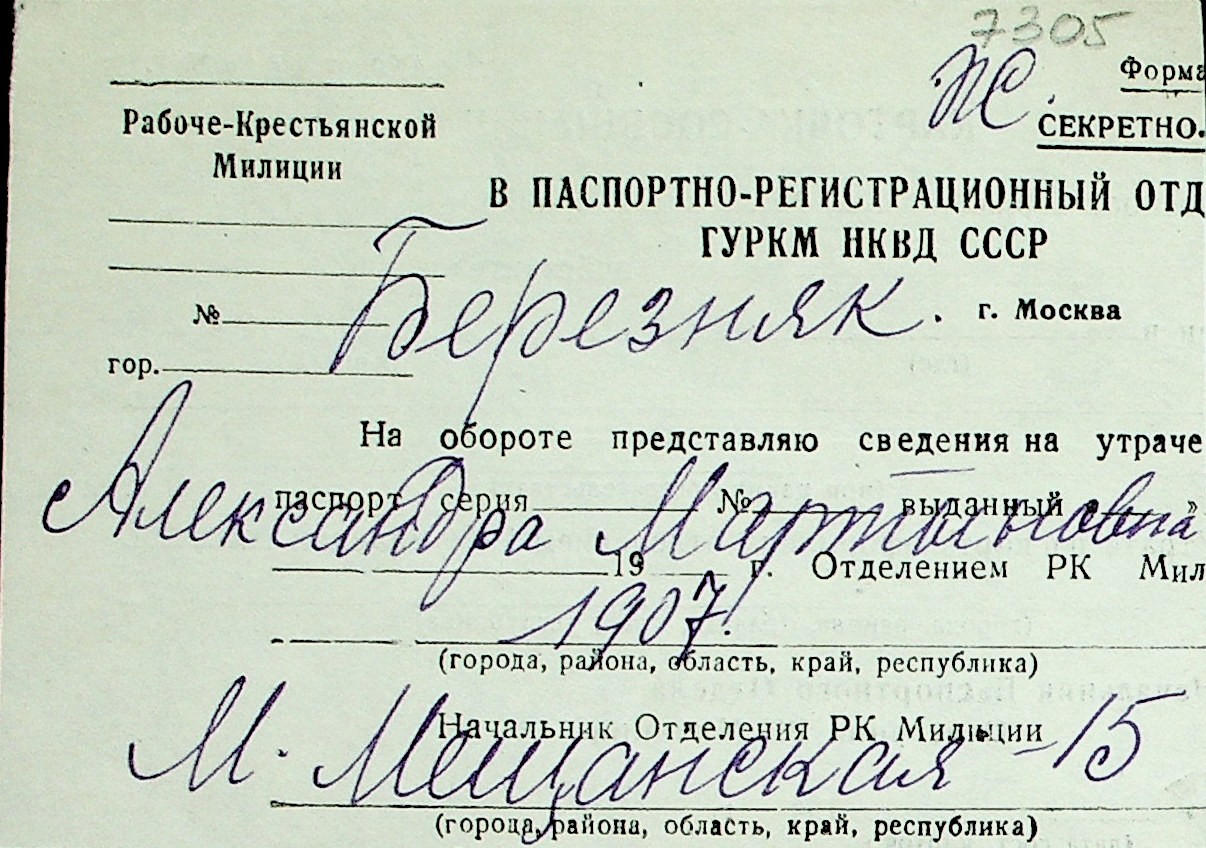 7305
ПС.
Форма
СЕКРЕТНО.
Рабоче-Крестьянской
Милиции
В ПАСПОРТНО-РЕГИСТРАЦИОННЫЙ ОТД
ГУРКМ НКВД СССР
Березняк.
№
г. Москва
гор.
На обороте представляю сведения на утраче
паспорт серия № выданный « »
Александра Мартыновна
19 г. Отделением РК Мил
1907.
(города, района, область, край, республика)
Начальник Отделения РК Милиции
М. Мещанская - 15
(города, района, область, край, республика)